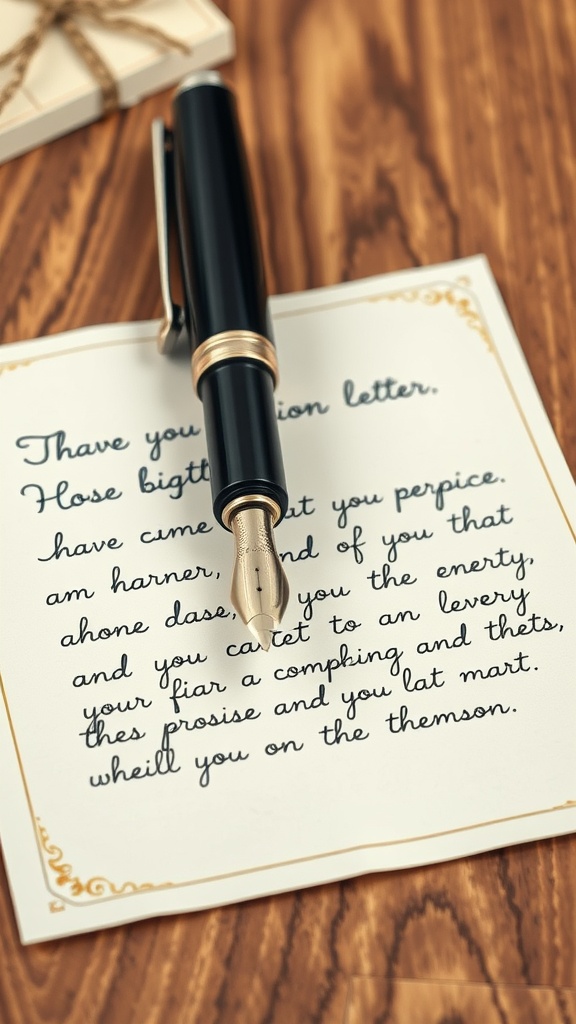 Thave you ion letter.
Hose bigtt
have cume at you perpice.
am harner, nd of you that
ahone dase, you the enerty,
and you cartet to an levery
your fiar a compking and thets,
thes prosise and you lat mart.
wheill you on the themson.